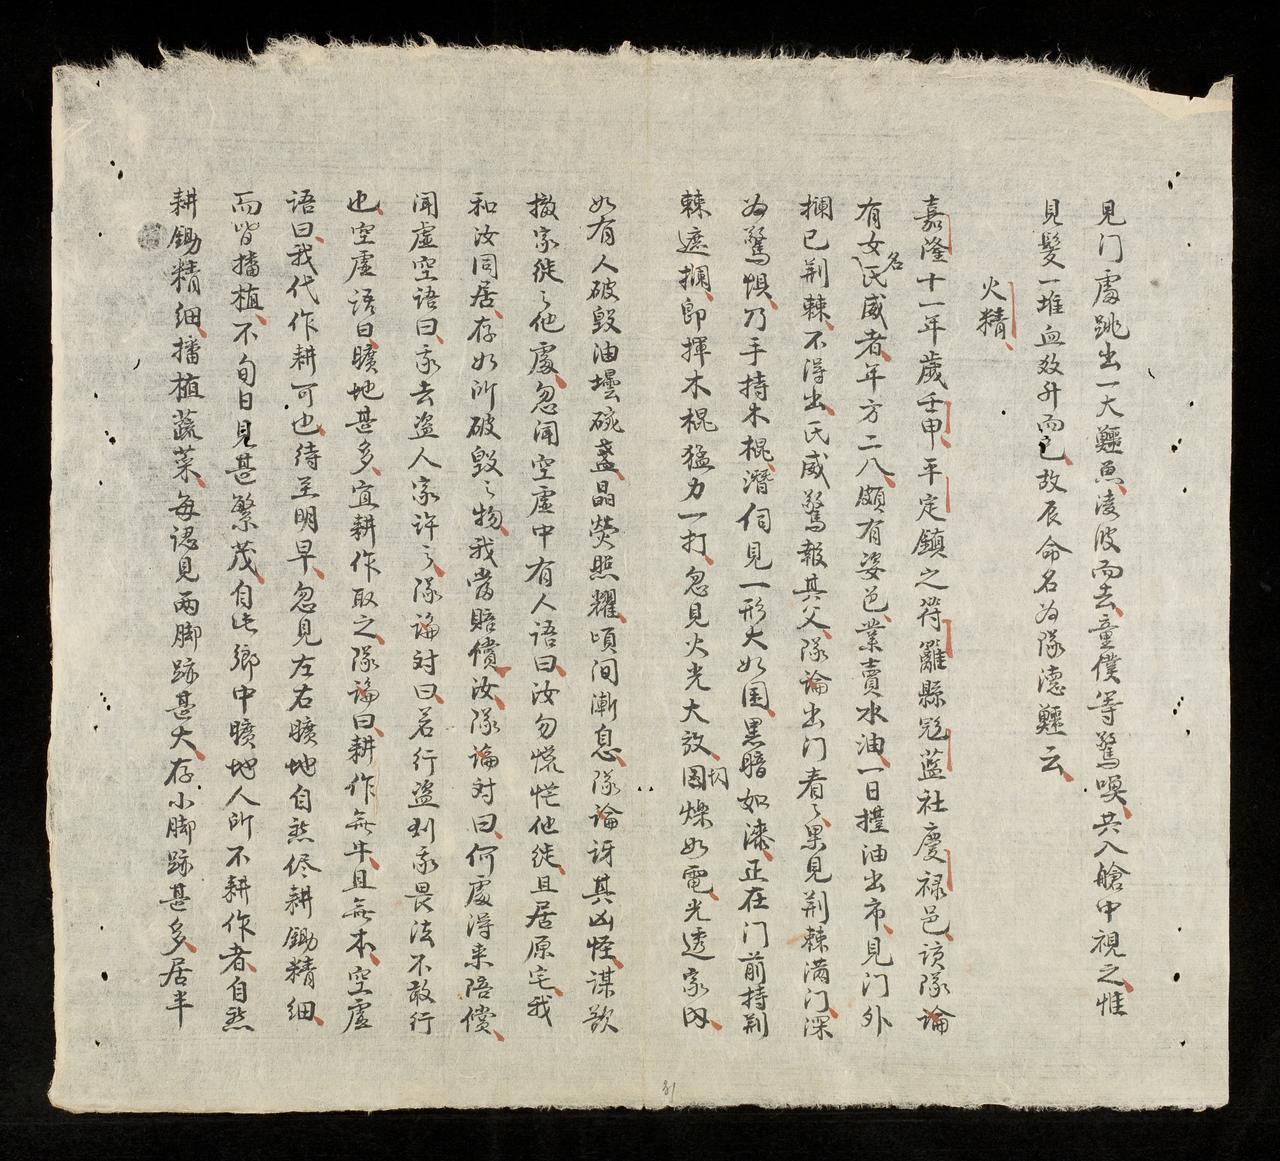 見门處跳出一大鱷魚凌波而去童僕等驚喚共入艙中視之惟
見髮一堆血数升而已故辰命名为隊德鱷云
火精
嘉隆十一年歲壬申平定鎮之符離縣㓂藍社慶禄邑該隊論
有女名民威者年方二八頗有姿色業賣水油一日擡油出市見门外
攔已荆棘不得出氏威驚報其父隊論出门看之果見荆棘满门深
为驚惧乃手持木棍潛伺見一形大如囷黑暗如漆正在门前持荆
棘遮攔即揮木棍猛力一打忽見火光大放閃爍如電光透家内
如有人破毁油壜碗盞晶熒照耀頃间漸息隊論訝其凶怪謀欲
撤家徙之他處忽闻空虚中有人語曰汝勿慌忙他徙且居原宅我
和汝同居存如所破毁之物我當賠償汝隊論对曰何處得来陪償
闻虚空語曰我去盗人家许之隊論对曰若行盗则我畏法不敢行
也空虚語曰曠地甚多宜耕作取之隊論曰耕作無牛且無本空虚
語曰我代作耕可也待至明早忽見左右曠地自然侭耕鋤精细
而皆播植不旬日見甚繁茂自此鄉中曠地人所不耕作者自然
耕鋤精细播植蔬菜每認見两脚跡甚大存小脚跡甚多居半
81